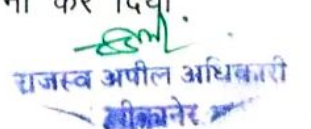 कर दिया.
राजस्व अपील अधिकारी
बीकानेर